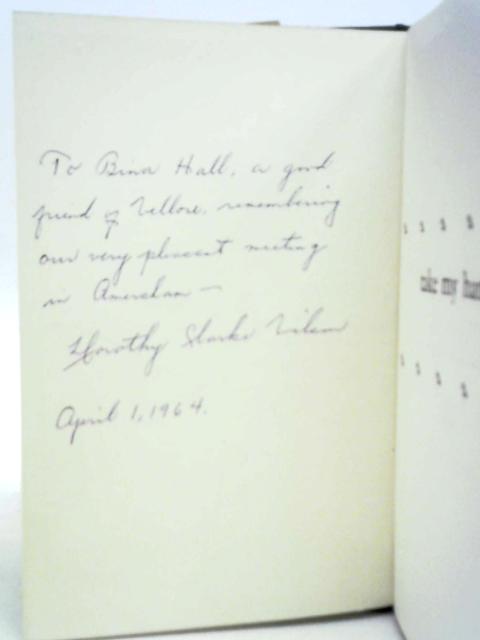 To Bina Hall, a good
friend of Vellore, remembering
our very pleasant meeting
in Amersham —
Dorothy Clarke Wilson
April 1, 1964.
take my han